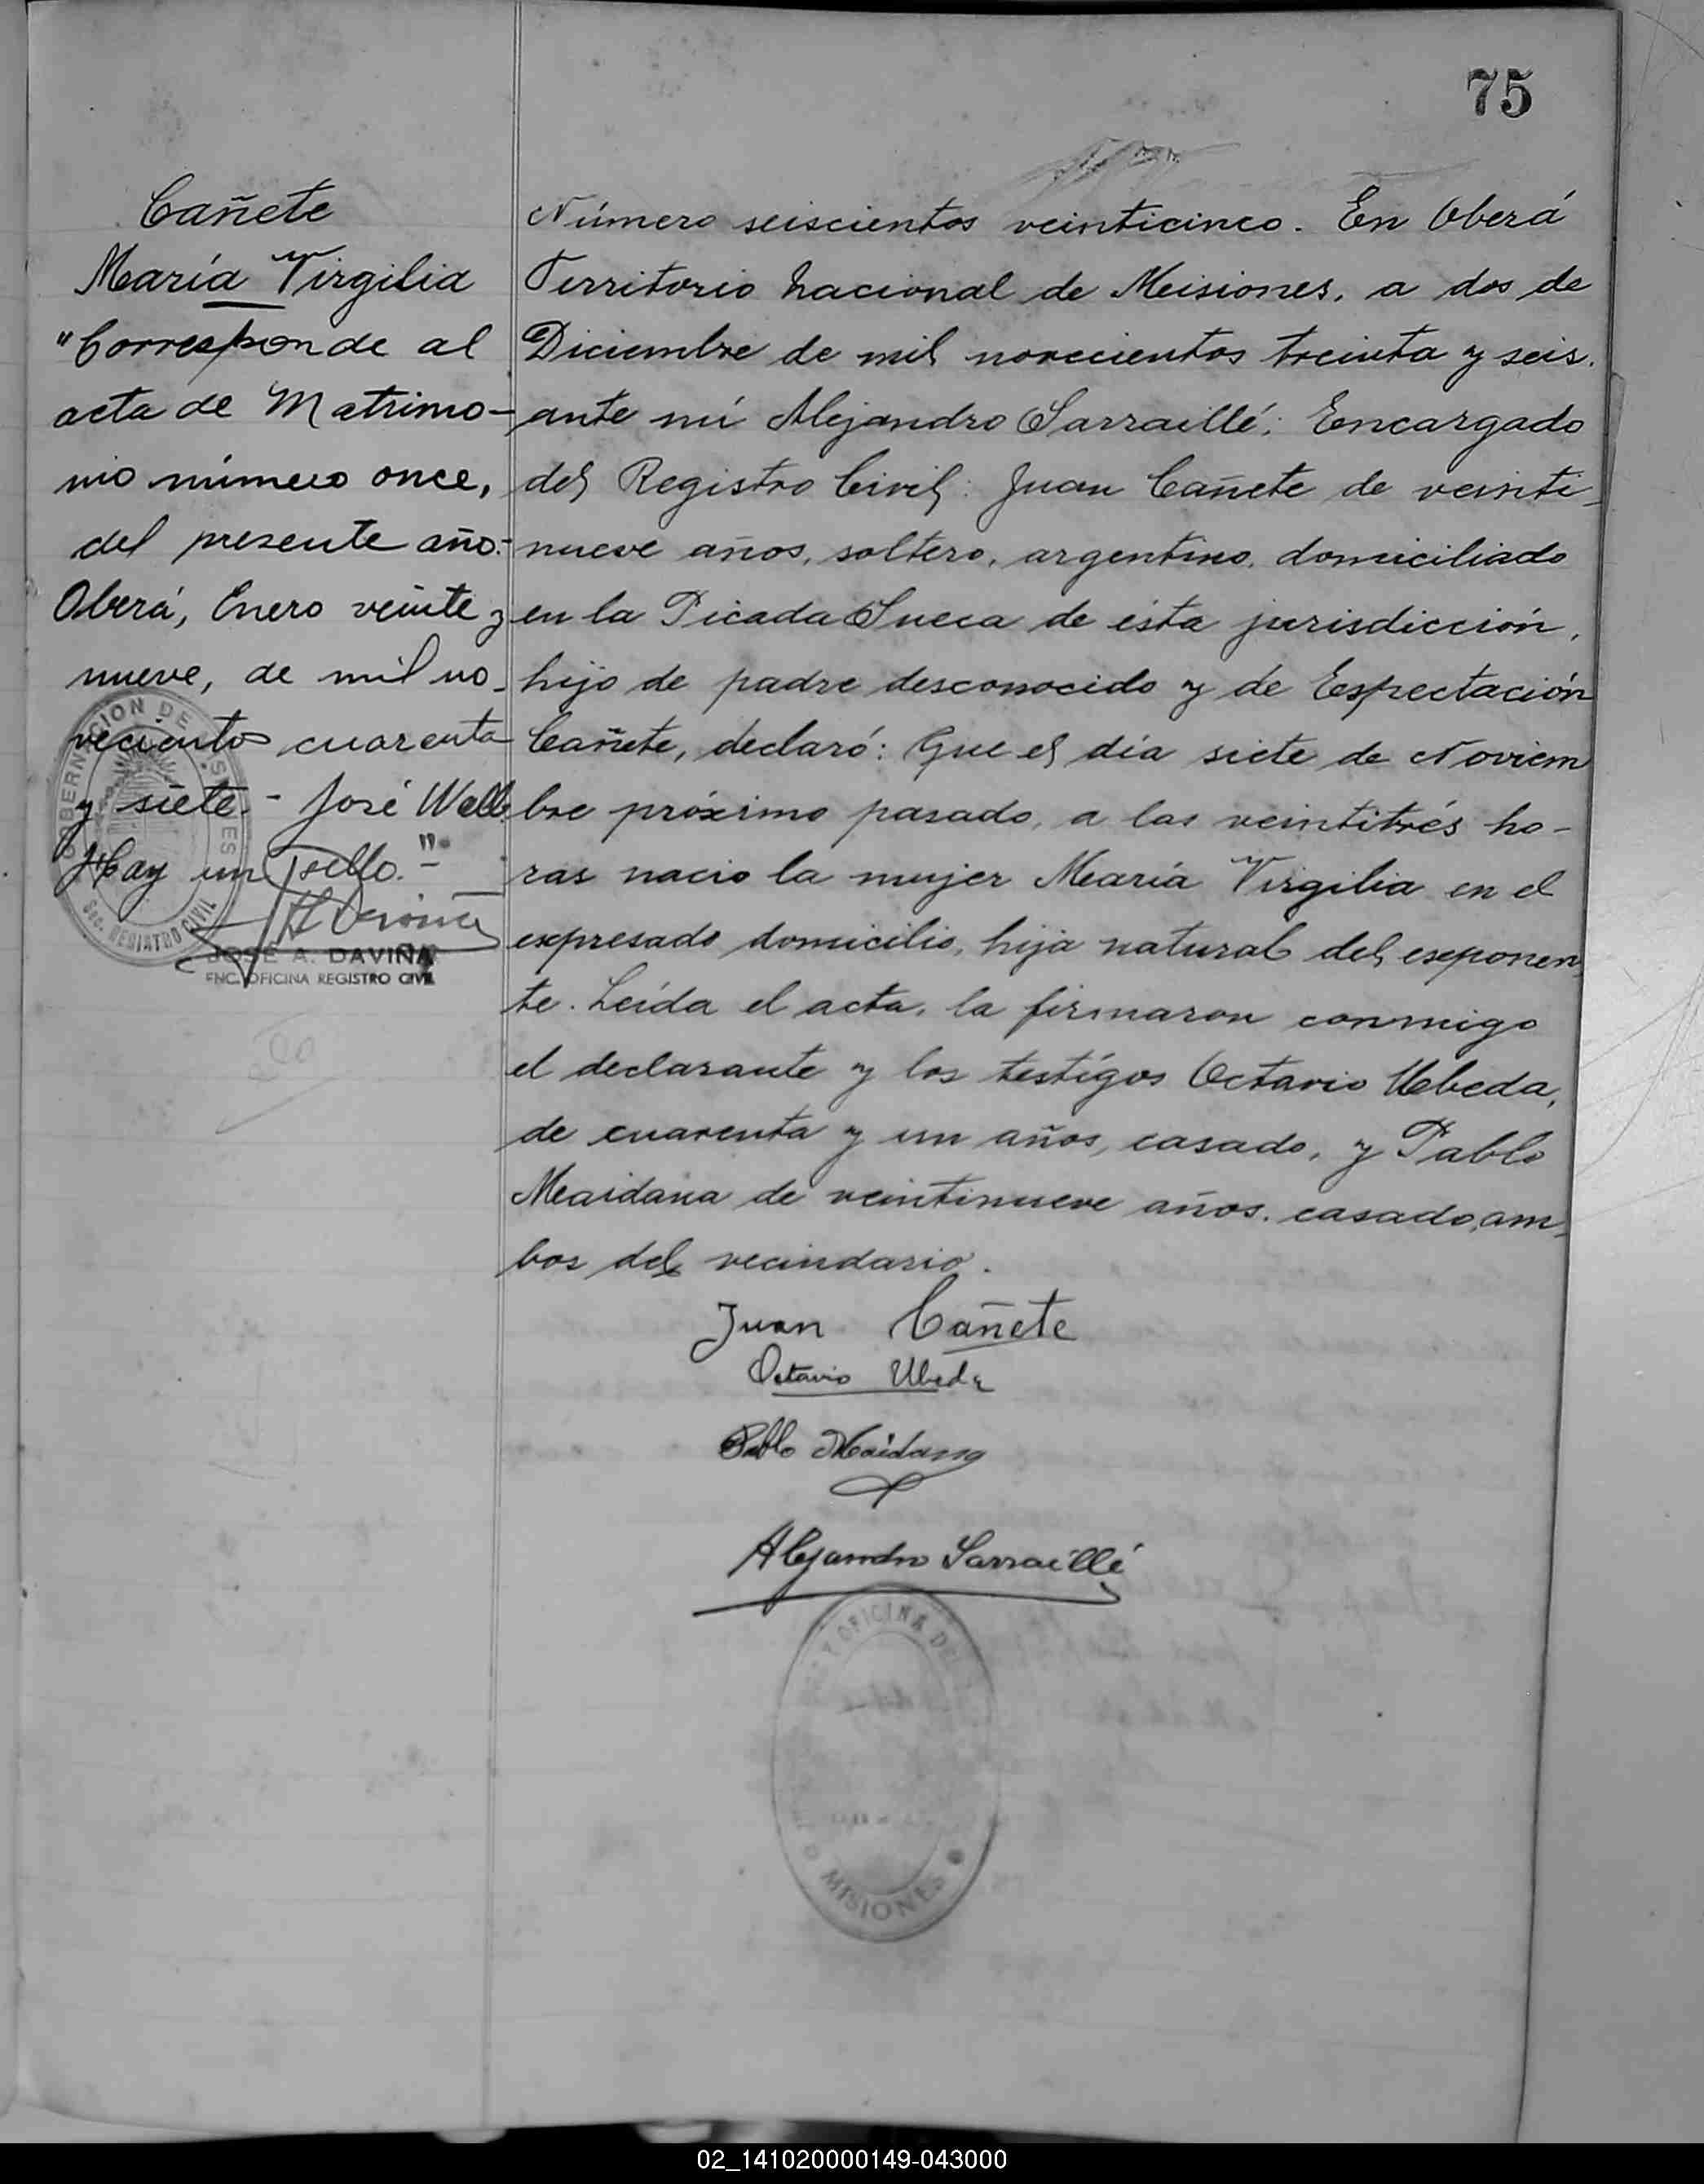 75
Cañete
María Virgilia
"Corresponde al
acta de Matrimo-
nio número once,
del presente año.-
Oberá, Enero veinte y
nueve, de mil no-
vecientos cuarenta
y siete.- José Welb
Hay un sello."-
GOBERNACION DE MISIONES
SEC. REGISTRO CIVIL
JOSE A. DAVIÑA
ENC. OFICINA REGISTRO CIVIL
Número seiscientos veinticinco. En Oberá
Territorio Nacional de Misiones, a dos de
Diciembre de mil novecientos treinta y seis.
ante mí Alejandro Sarraillé; Encargado
del Registro Civil: Juan Cañete de veinti-
nueve años, soltero, argentino, domiciliado
en la Picada Sueca de ésta jurisdicción,
hijo de padre desconocido y de Espectación
Cañete, declaró: Que el día siete de Noviem
bre próximo pasado, a las veintitrés ho-
ras nacio la mujer María Virgilia en el
expresado domicilio, hija natural del exponen
te. Leída el acta, la firmaron conmigo
el declarante y los testígos Octavio Ubeda,
de cuarenta y un años, casado, y Pablo
Maidana de veintinueve años. casado, am-
bos del vecindario.
Juan Cañete
Octavio Ubeda
Pablo Maidana
Alejandro Sarraillé
OFICINA DEL
MISIONES
02_141020000149-043000